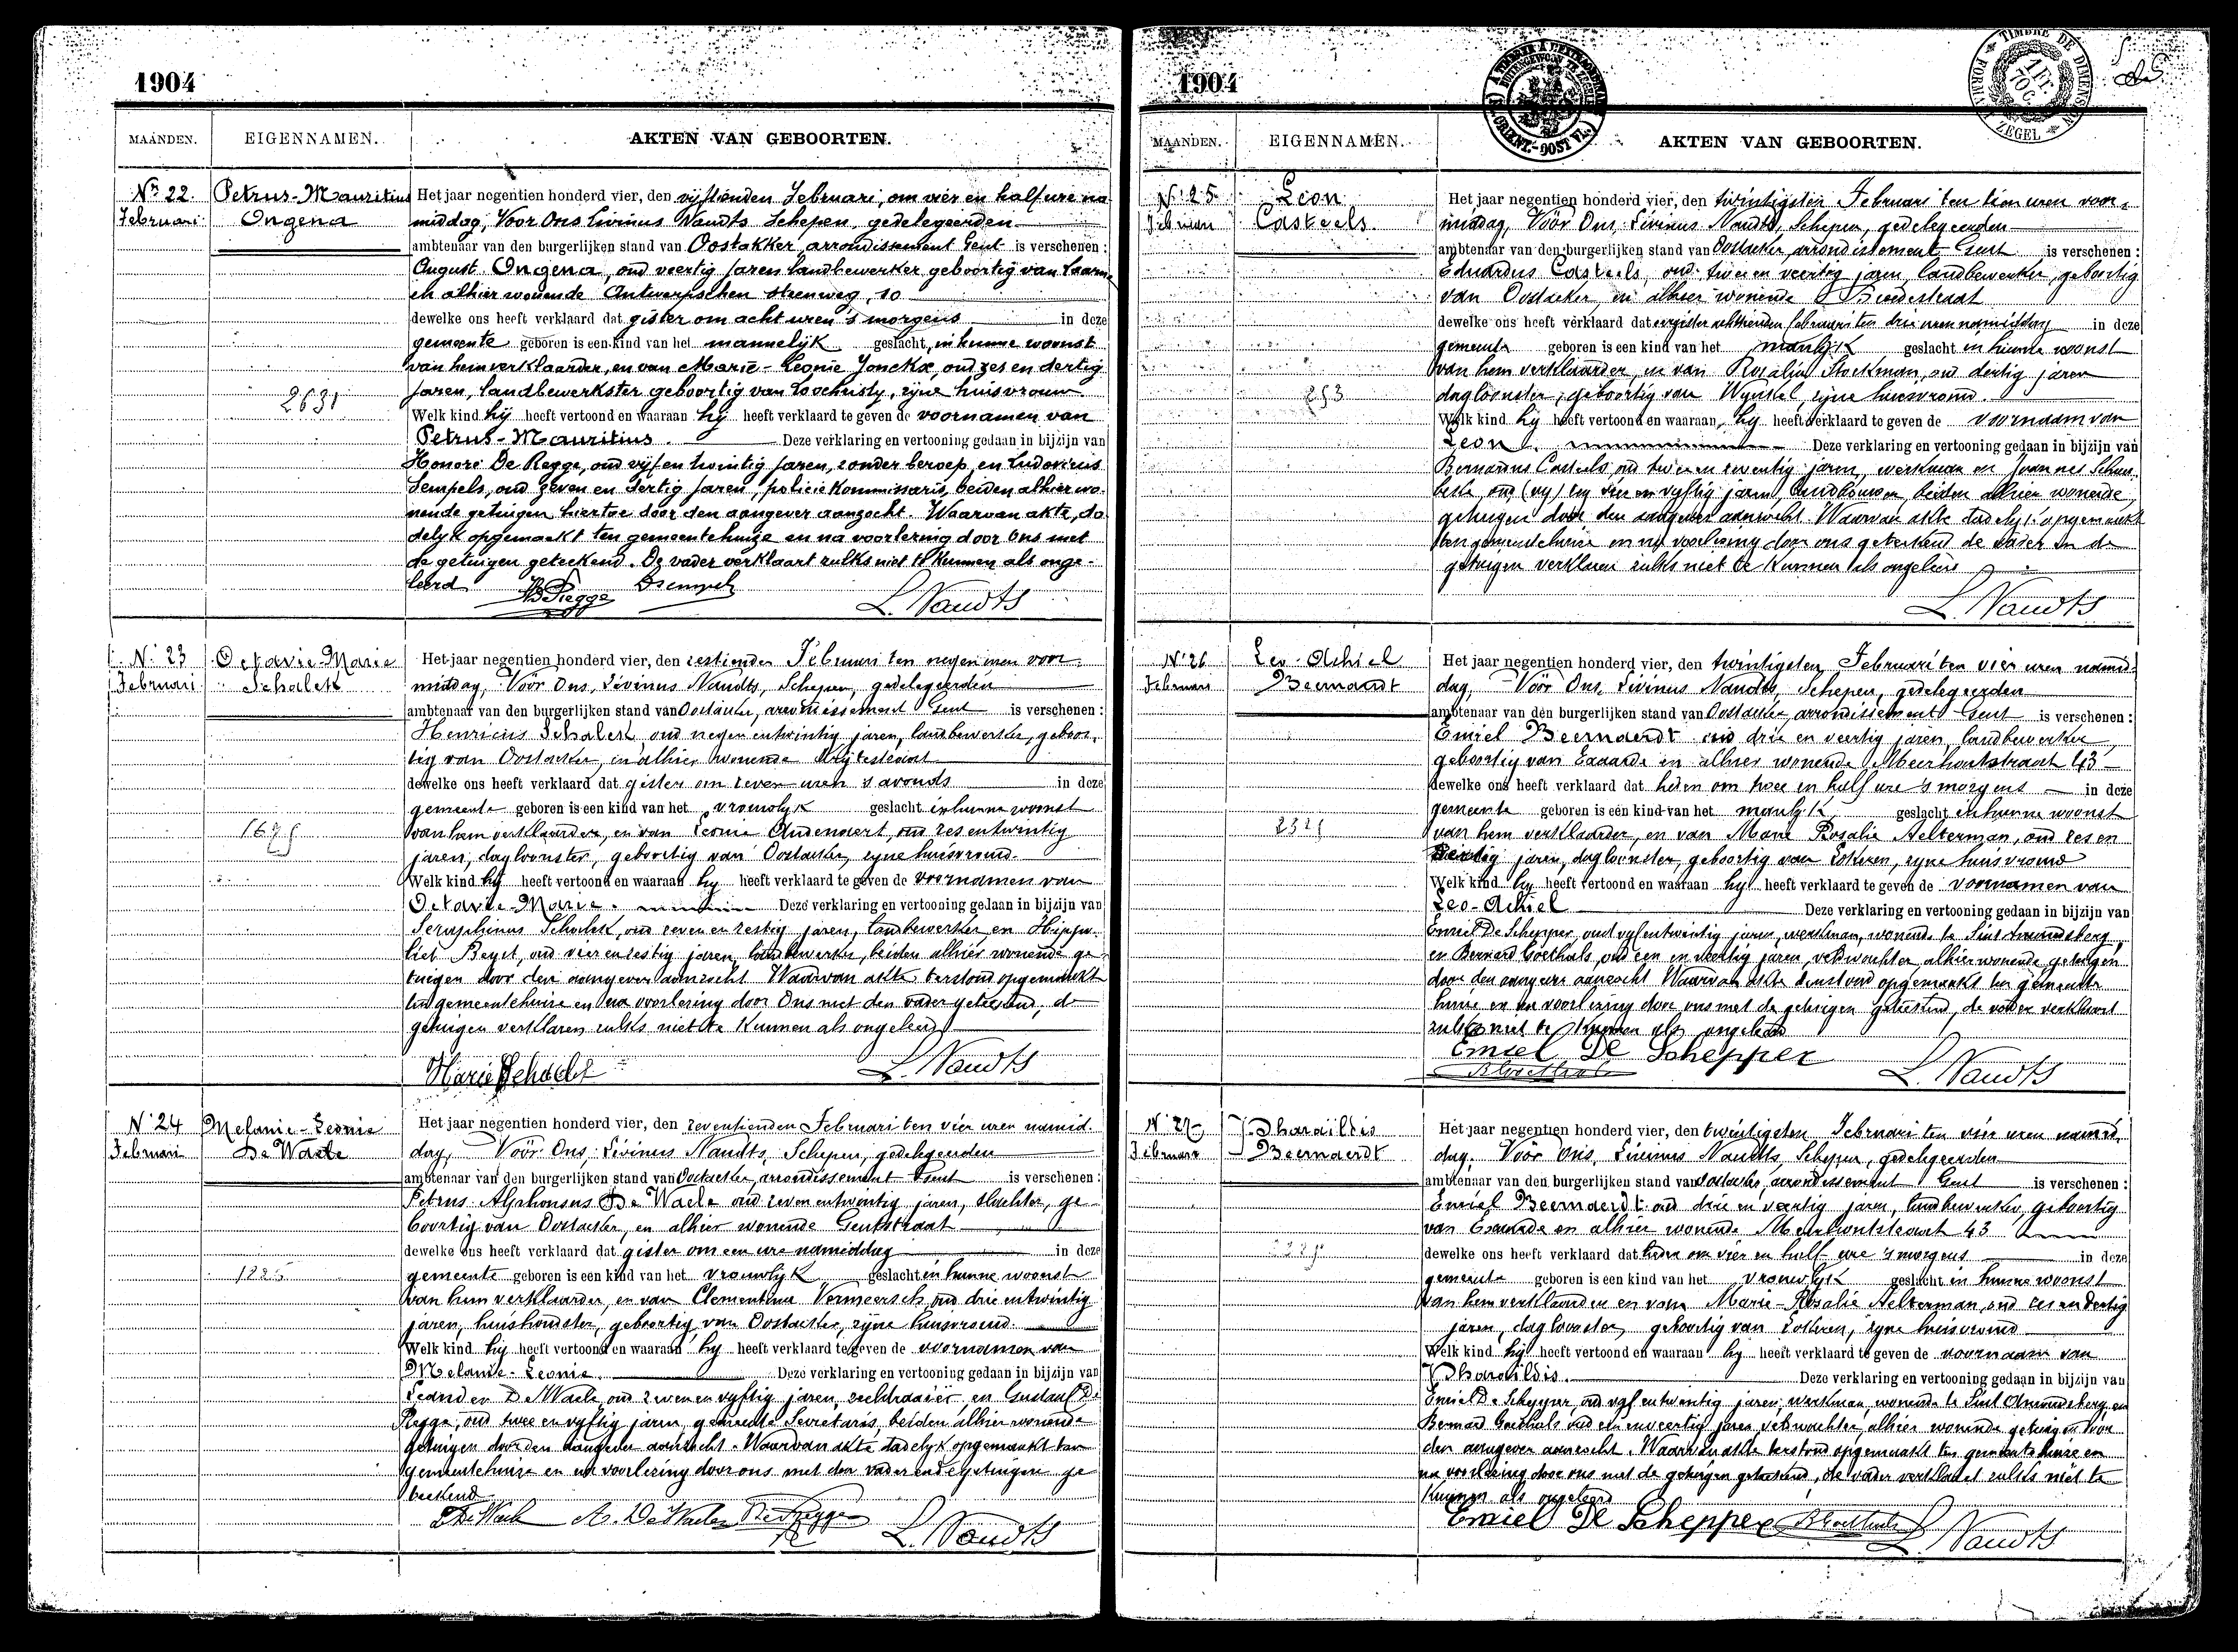 1904
MAANDEN.
EIGENNAMEN.
AKTEN VAN GEBOORTEN.
Nr 22.
Februari
Petrus-Mauritius
Ongena
Het jaar negentien honderd vier, den vijftienden Februari, om vier en half ure na
middag, Voor Ons Livinus Naudts Schepen, gedelegeerden
ambtenaar van den burgerlijken stand van Oostakker arrondissement Gent is verschenen :
August Ongena, oud veertig jaren landbewerker geboortig van
en alhier wonende Antwerpschen steenweg, 10
dewelke ons heeft verklaard dat gister om acht uren 's morgens in deze
gemeente geboren is een kind van het mannelijk geslacht, in hunne woonst
van hem verklaarder, en van Marie-Leonie Jonckx, oud zes en dertig
jaren, landbewerkster geboortig van Loochristy, zijne huisvrouw
2631
Welk kind hij heeft vertoond en waaraan hij heeft verklaard te geven de voornamen van
Petrus-Mauritius. Deze verklaring en vertooning gedaan in bijzijn van
Honoré De Regge, oud vijf en twintig jaren, zonder beroep, en Ludovicus
Sempels, oud zeven en dertig jaren, policie Kommissaris, beiden alhier wo-
nende getuigen hiertoe door den aangever aanzocht. Waarvan akte, da
delyk opgemaakt ten gemeentehuize en na voorlezing door Ons met
de getuigen geteekend. De vader verklaart zulks niet te kunnen als onge-
leerd
L. Naudts
N. 23
Februari
Octavie-Marie
Schalck
Het jaar negentien honderd vier, den zestienden Februari ten negen uren voor-
middag, Voor Ons, Livinus Naudts, Schepen, gedelegeerden
ambtenaar van den burgerlijken stand van Oostacker, arrondissement Gent is verschenen :
Henricus Schalck, oud negen en twintig jaren, landbewerker, geboor-
tig van Oostacker, en alhier wonende
dewelke ons heeft verklaard dat gister om zeven uren 's avonds in deze
gemeente geboren is een kind van het vrouwlyk geslacht in hunne woonst
van hem verklaarder, en van Leonie Audenaert, oud zes en twintig
jaren, dagloonster, geboortig van Oostacker, zyne huisvrouw.
Welk kind hij heeft vertoond en waaraan hy heeft verklaard te geven de voornamen van
Octavie-Marie. Deze verklaring en vertooning gedaan in bijzijn van
Seraphinus Schalck, oud zeven en zestig jaren, landbewerker en Hippo-
liet Beyst, oud vier en zestig jaren, landbewerker, beiden alhier wonende ge-
tuigen door den aangever aanzocht. Waarvan akte terstond opgemaakt
ten gemeentehuize en na voorlezing door Ons met den vader geteekend, de
getuigen verklaren zulks niet te kunnen als ongeleerd
L. Naudts
N. 24
Februari
Melanie-Leonie
De Waele
Het jaar negentien honderd vier, den zeventienden Februari ten vier uren namid-
dag, Voor Ons, Livinus Naudts, Schepen, gedelegeerden
ambtenaar van den burgerlijken stand van Oostacker, arrondissement Gent is verschenen :
Petrus-Alphonsus De Waele oud zeven en twintig jaren, slachter, ge-
boortig van Oostacker, en alhier wonende Gentstraat
dewelke ons heeft verklaard dat gister om een ure namiddag in deze
gemeente geboren is een kind van het vrouwlyk geslacht in hunne woonst
van hem verklaarder, en van Clementina Vermeersch, oud drie en twintig
jaren, huishoudster, geboortig van Oostacker, zyne huisvrouw.
Welk kind hij heeft vertoond en waaraan hy heeft verklaard te geven de voornamen van
Melanie-Leonie. Deze verklaring en vertooning gedaan in bijzijn van
Leander De Waele, oud zeven en vyftig jaren, zeeldraaier, en Gustaaf De
Regge, oud twee en vyftig jaren, gemeente Secretaris, beiden alhier wonende
getuigen door den aangever aanzocht. Waarvan akte dadelyk opgemaakt ten
gemeentehuize en na voorlezing door ons met den vader en de getuigen ge
teekend
L. Naudts
1904
MAANDEN.
EIGENNAMEN.
AKTEN VAN GEBOORTEN.
N. 25
Februari
Leon
Casteels
Het jaar negentien honderd vier, den twintigsten Februari ten tien uren voor-
middag, Voor Ons, Livinus Naudts, Schepen, gedelegeerden
ambtenaar van den burgerlijken stand van Oostacker, arrondissement Gent is verschenen :
Eduardus Casteels, oud twee en veertig jaren, landbewerker, geboortig
van Oostacker, en alhier wonende
dewelke ons heeft verklaard dat eergister achttienden februari ten drie uren namiddag in deze
gemeente geboren is een kind van het manlyk geslacht in hunne woonst
van hem verklaarder, en van Rosalia Stockman, oud dertig jaren
dagloonster, geboortig van zyne huisvrouw.
Welk kind hy heeft vertoond en waaraan hy heeft verklaard te geven de voornaam van
Leon. Deze verklaring en vertooning gedaan in bijzijn van
Bernardus Casteels oud twee en zeventig jaren, werkman en Joannes
vier en vyftig jaren, landbouwer, beiden alhier wonende,
getuigen door den aangever aanzocht. Waarvan akte dadelyk opgemaakt
ten gemeentehuize en na voorlezing door ons geteekend de vader en de
getuigen verklaren zulks niet te kunnen als ongeleerd
L. Naudts
N. 26
Februari
Leo-Achiel
Beernaerdt
Het jaar negentien honderd vier, den twintigsten Februari ten vier uren namid-
dag, Voor Ons, Livinus Naudts, Schepen, gedelegeerden
ambtenaar van den burgerlijken stand van Oostacker, arrondissement Gent is verschenen :
Emiel Beernaerdt oud drie en veertig jaren, landbewerker,
geboortig van Exaarde en alhier wonende Meerhoutstraat 43
dewelke ons heeft verklaard dat heden om twee en half ure 's morgens in deze
gemeente geboren is een kind van het manlyk geslacht in hunne woonst
van hem verklaarder, en van Marie Rosalie Aelterman, oud zes en
dertig jaren, dagloonster, geboortig van Lotheren, zyne huisvrouw
Welk kind hy heeft vertoond en waaraan hy heeft verklaard te geven de voornamen van
Leo-Achiel Deze verklaring en vertooning gedaan in bijzijn van
Emiel De Schepper, oud vyf en twintig jaren, werkman, wonende te Sint Amandsberg,
en Bernard Goethals, oud een en veertig jaren, veldwachter, alhier wonende getuigen
door den aangever aanzocht. Waarvan akte terstond opgemaakt ten gemeente
huize en na voorlezing door ons met de getuigen geteekend, de vader verklaart
zulks niet te kunnen als ongeleerd
Emiel De Schepper
L. Naudts
N. 27
Februari
Pharaildis
Beernaerdt
Het jaar negentien honderd vier, den twintigsten Februari ten vier uren namid-
dag, Voor Ons, Livinus Naudts, Schepen, gedelegeerden
ambtenaar van den burgerlijken stand van Oostacker, arrondissement Gent is verschenen :
Emiel Beernaerdt oud drie en veertig jaren, landbewerker, geboortig
van Exaarde en alhier wonende Meerhoutstraat 43
dewelke ons heeft verklaard dat heden om vier en half ure 's morgens in deze
gemeente geboren is een kind van het vrouwlyk geslacht in hunne woonst
van hem verklaarder en van Marie-Rosalie Aelterman, oud zes en dertig
jaren, dagloonster, geboortig van Lotheren, zyne huisvrouw
Welk kind hy heeft vertoond en waaraan hy heeft verklaard te geven de voornaam van
Pharaildis. Deze verklaring en vertooning gedaan in bijzijn van
Emiel De Schepper, oud vyf en twintig jaren, werkman, wonende te Sint Amandsberg en
Bernard Goethals oud een en veertig jaren, veldwachter, alhier wonende getuigen door
den aangever aanzocht. Waarvan akte terstond opgemaakt ten gemeentehuize en
na voorlezing door ons met de getuigen geteekend, de vader verklaart zulks niet te
kunnen als ongeleerd
Emiel De Schepper
L. Naudts